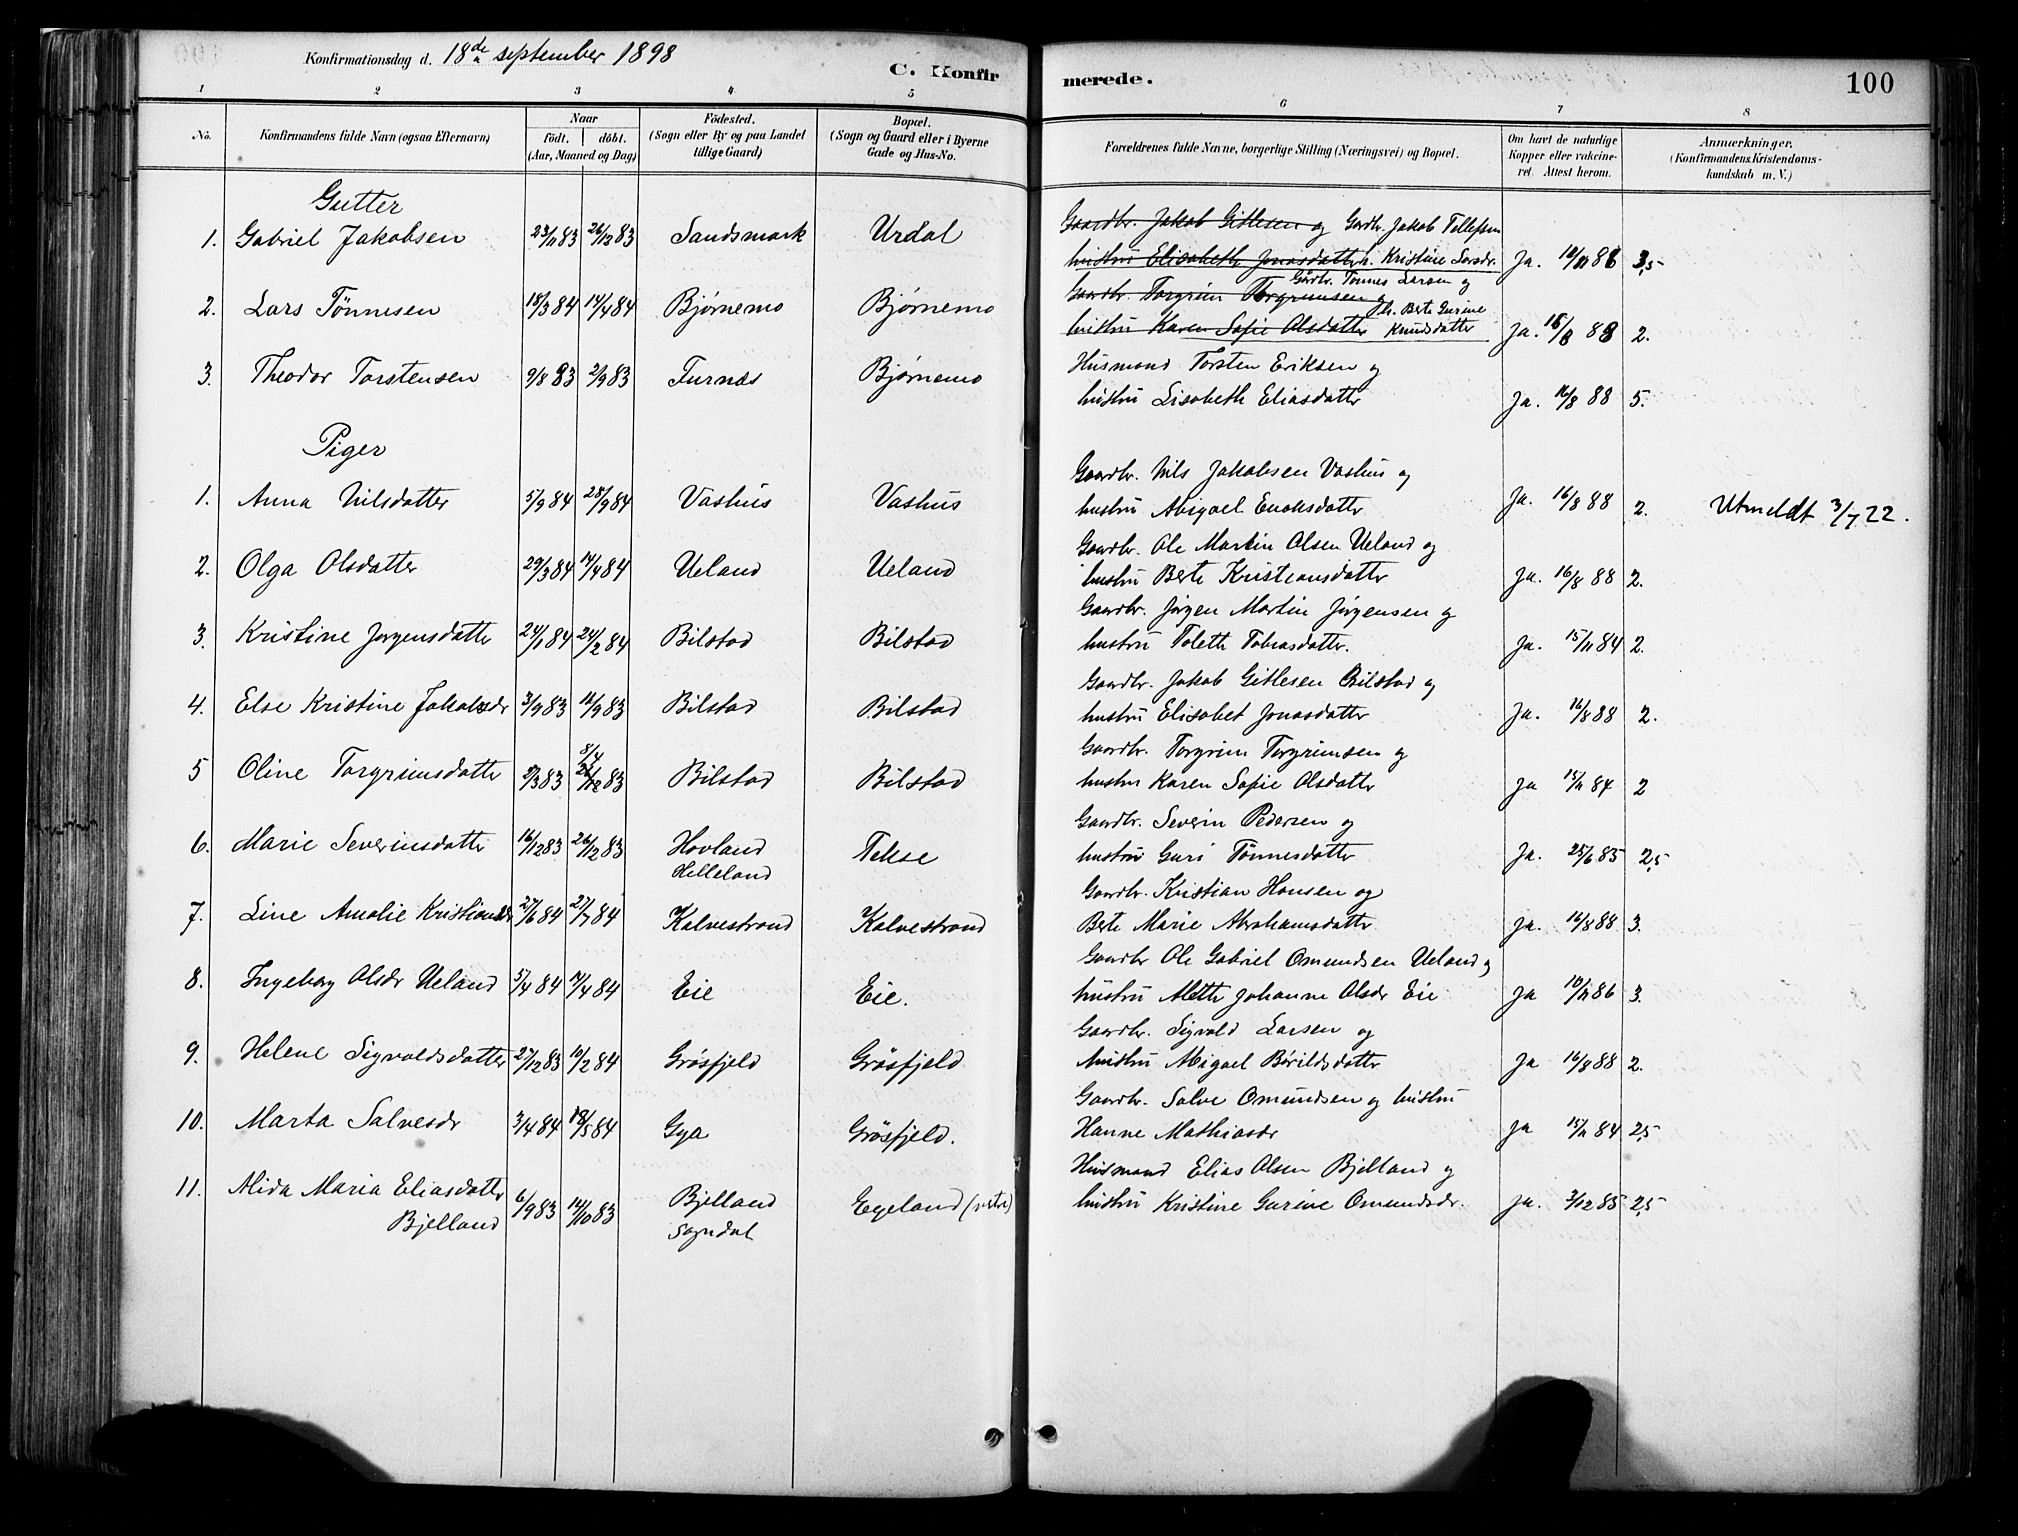 Konfirmationsdag d. 18de september 1898
C. Konfirmerede.
100
1 2 3 4 5 6 7 8
No. Konfirmandens fulde Navn (ogsaa Efternavn) Naar födt. döbt. (Aar, Maaned og Dag) Födested. (Sogn eller By og paa Landet tillige Gaard) Bopæl. (Sogn og Gaard eller i Byerne Gade og Hus-No. Forældrenes fulde Navne, borgerlige Stilling (Næringsvei) og Bopæl. Om havt de naturlige Kopper eller vakcineret. Attest herom. Anmærkninger. (Konfirmandens Kristendomskundskab m. V.)
Gutter
1. Gabriel Jakobsen 23/11 83 26/12 83 Sandsmark Urdal Gaardbr. Jakob Gitlesen og Gardbr. Jakob Tollefsen
hustru Elisabeth Jonasdatter h. Kristine Larsdr. Ja. 10/11 86 3,5
2. Lars Tönnesen 18/3 84 14/4 84 Bjørnemo Bjørnemo Gaardbr. Torgrim Torgrimsen og Gårdbr. Tönnes Larsen og
hustru Karen Sofie Olsdatter h. Berte Gurine Knudsdatter Ja. 16/8 88 2.
3. Theodor Torstensen 9/8 83 2/9 83 Furnæs Bjørnemo Husmand Torsten Eriksen og
hustru Lisabeth Eliasdatter Ja. 16/8 88 5.
Piger
1. Anna Nilsdatter 5/9 84 28/9 84 Vashus Vashus Gaardbr. Nils Jakobsen Vashus og
hustru Abigael Enoksdatter Ja. 16/8 88 2. Utmeldt 3/7 22.
2. Olga Olsdatter 29/3 84 14/4 84 Ueland Ueland Gaardbr. Ole Martin Olsen Ueland og
hustru Berte Kristiansdatter Ja. 16/8 88 2.
3. Kristine Jørgensdatter 24/1 84 24/2 84 Bilstad Bilstad Gaardbr. Jørgen Martin Jørgensen og
hustru Tolette Tobiasdatter. Ja. 15/11 84 2.
4. Else Kristine Jakobsdr 3/9 83 16/9 83 Bilstad Bilstad Gaardbr. Jakob Gitlesen Bilstad og
hustru Elisabet Jonasdatter Ja. 16/8 88 2.
5 Oline Torgrimsdatter 2/3 83 8/4 83 Bilstad Bilstad Gaardbr. Torgrim Torgrimsen og
hustru Karen Sofie Olsdatter Ja 15/11 84 2
6. Marie Severinsdatter 16/12 83 26/12 83 Hovland Helleland Tekse Gaardbr. Severin Pedersen og
hustru Guri Tönnesdatter Ja. 25/6 85 2,5
7. Line Amalie Kristiansdr 27/6 84 27/7 84 Kalvestrand Kalvestrand Gaardbr. Kristian Hansen og
Berte Marie Abrahamsdatter Ja. 16/8 88 3.
8. Ingeborg Olsdr Ueland 5/4 84 14/4 84 Eie Eie. Gaardbr Ole Gabriel Omundsen Ueland og
hustru Alette Johanne Olsdr Eie Ja 10/11 86 3.
9. Helene Sigvaldsdatter 27/12 83 10/2 84 Grösfjeld Grösfjeld Gaardbr. Sigvald Larsen og
hustru Abigael Börildsdatter Ja 16/8 88 2.
10. Marta Salvesdr 3/4 84 18/5 84 Gya Grösfjeld. Gaardbr. Salve Omundsen og hustru
Hanne Mathiasdr Ja 15/11 84 2,5
11. Alida Maria Eliasdatter Bjelland 6/9 83 14/10 83 Bjelland Sogndal Egeland (vestre) Husmand Elias Olsen Bjelland og
hustru Kristine Gurine Omundsdr. Ja. 3/12 85 2,5